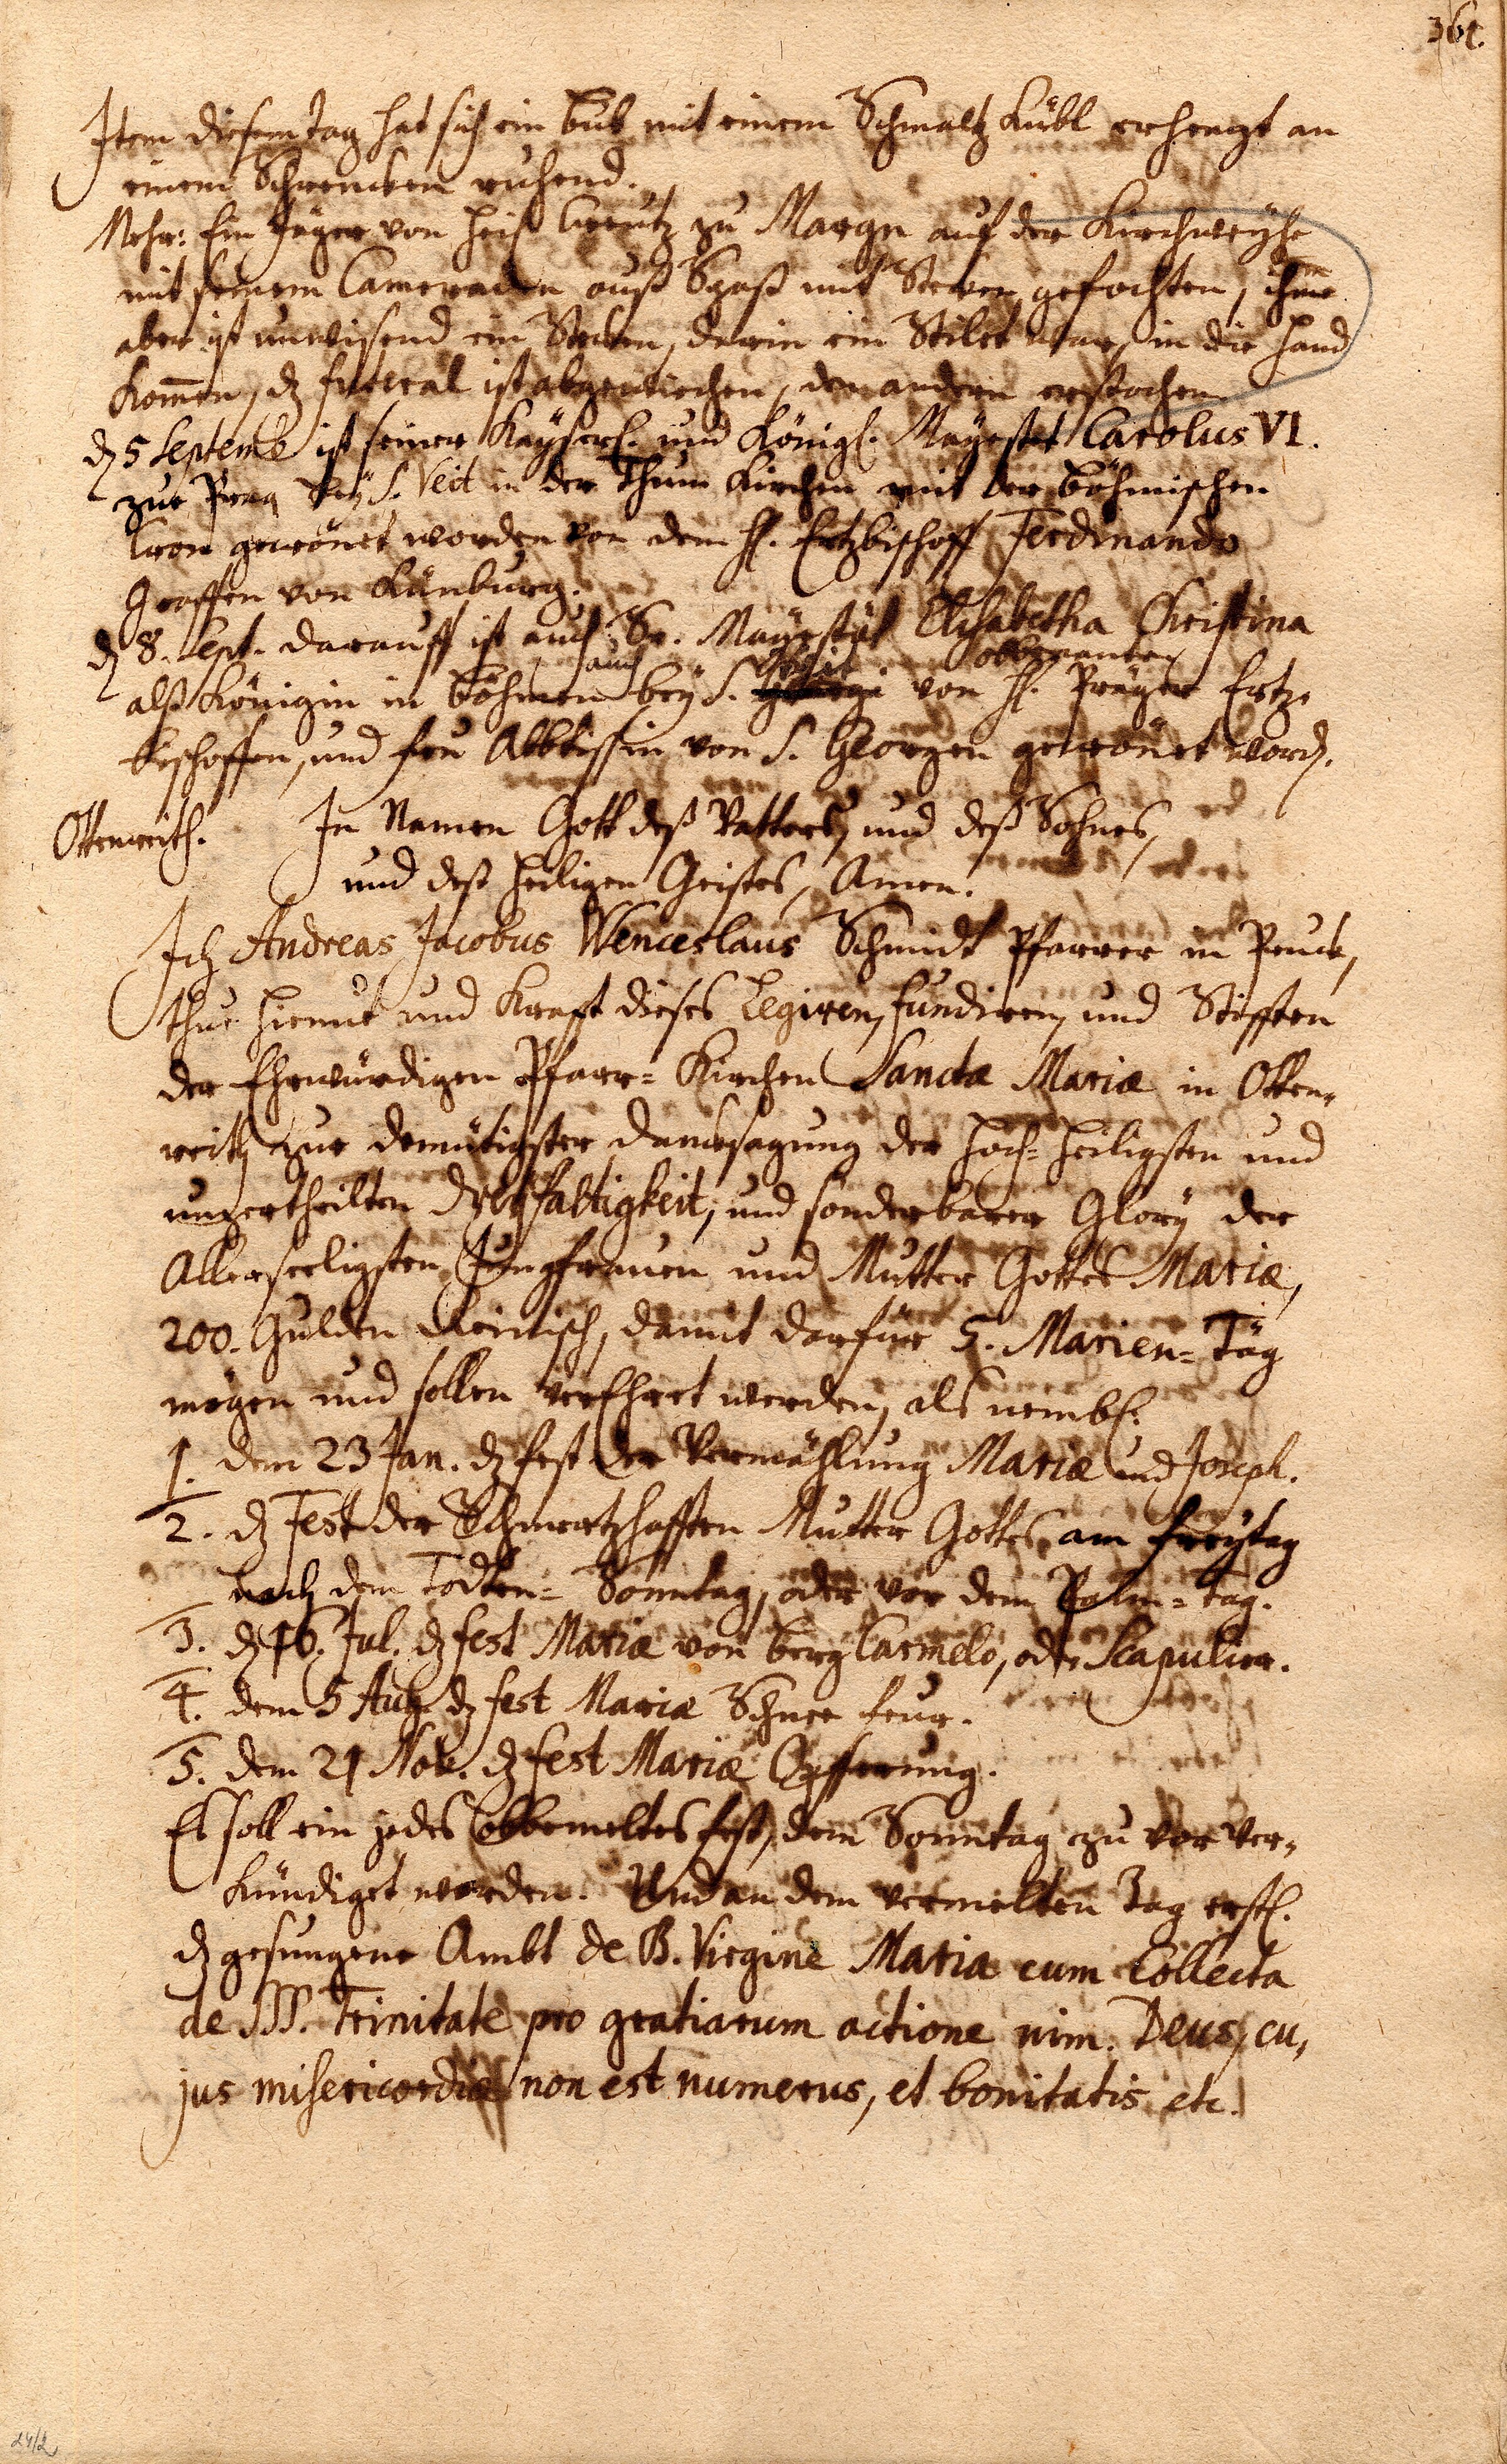 361.
Item diesem tag hat sich ein bub mit einem Schmaltz Kübl erhengt an
einem Schrencken ruhend.
Mehr: Ein Jäger von Heil. Creutz zu Margn auf der Kirchweyhe
mit seinem Cameraden auß Spaß mit Stecken gefochten, ihme
aber ist unwisend ein Stecken, darin ein Stilet war, in die hand
kom̄en, dz futeral ist abgewichen, den andern erstochen.
dz 5 Septemb ist seiner Kayserl. und Königl. Mayestet Carolus VI.
zue Prag bey S. Veit in der Thum Kirchen mit der böhmischen
Cron gecrönet worden von dem H. Ertzbischoff Ferdinando
Graffen von Künburg.
dz 8. Sept. darauff ist auch Se. Mayestät Elisabetha Christina
auch Veit obbenanten
alß Königin in böhmen bey S. von H. Präger Ertz-
bischoffen, und fru Abbtissin von S. Georgen gecrönet word.
Ottenreith. In Namen Gott deß Vatters, und deß Sohnes,
und deß heiligen Geistes, Amen.
Ich Andreas Jacobus Wenceslaus Schmidt Pfarrer in Pruck,
thue hiemit und Kraft dieses Legiren, fundiren, und Stifften
der Ehrwürdigen Pfarr-Kirchen Sanctæ Mariæ in Otten-
reith zue demütigster danksagung der Hoch-heiligsten und
unzertheilten Dreyfaltigkeit, und sonderbarer Glory der
Allerseeligsten Jungfrauen und Mutter Gottes Mariæ,
200. Gulden Reinisch, damit darfür 5. Marien-Täg
mögen und sollen verEhret werden, als nembl.
1. dem 23 Jan. dz fest der Vermählung Mariæ und Joseph.
2. dz Fest der Schmertzhafften Mutter Gottes am freytag
nach dem Todten-Sonntag, oder vor dem Palm-Tag.
3. dz 16. Jul. dz fest Mariæ von berg Carmelo, oder Scapulier.
4. dem 5 Aug. dz fest Mariæ Schnee feur.
5. dem 21 Nov. dz fest Mariæ Opfferung.
Es soll ein jedes obbemeltes fest, dem Sonntag zu vor ver-
kündiget werden. Und an dem vermelten Tag erstl.
dz gesungene Ambt de B. Virgine Maria cum Collecta
de SSS. Trinitate pro gratiarum actione nim. Deus, cu-
jus misericordiæ non est numerus, et bonitatis etc.
24/2